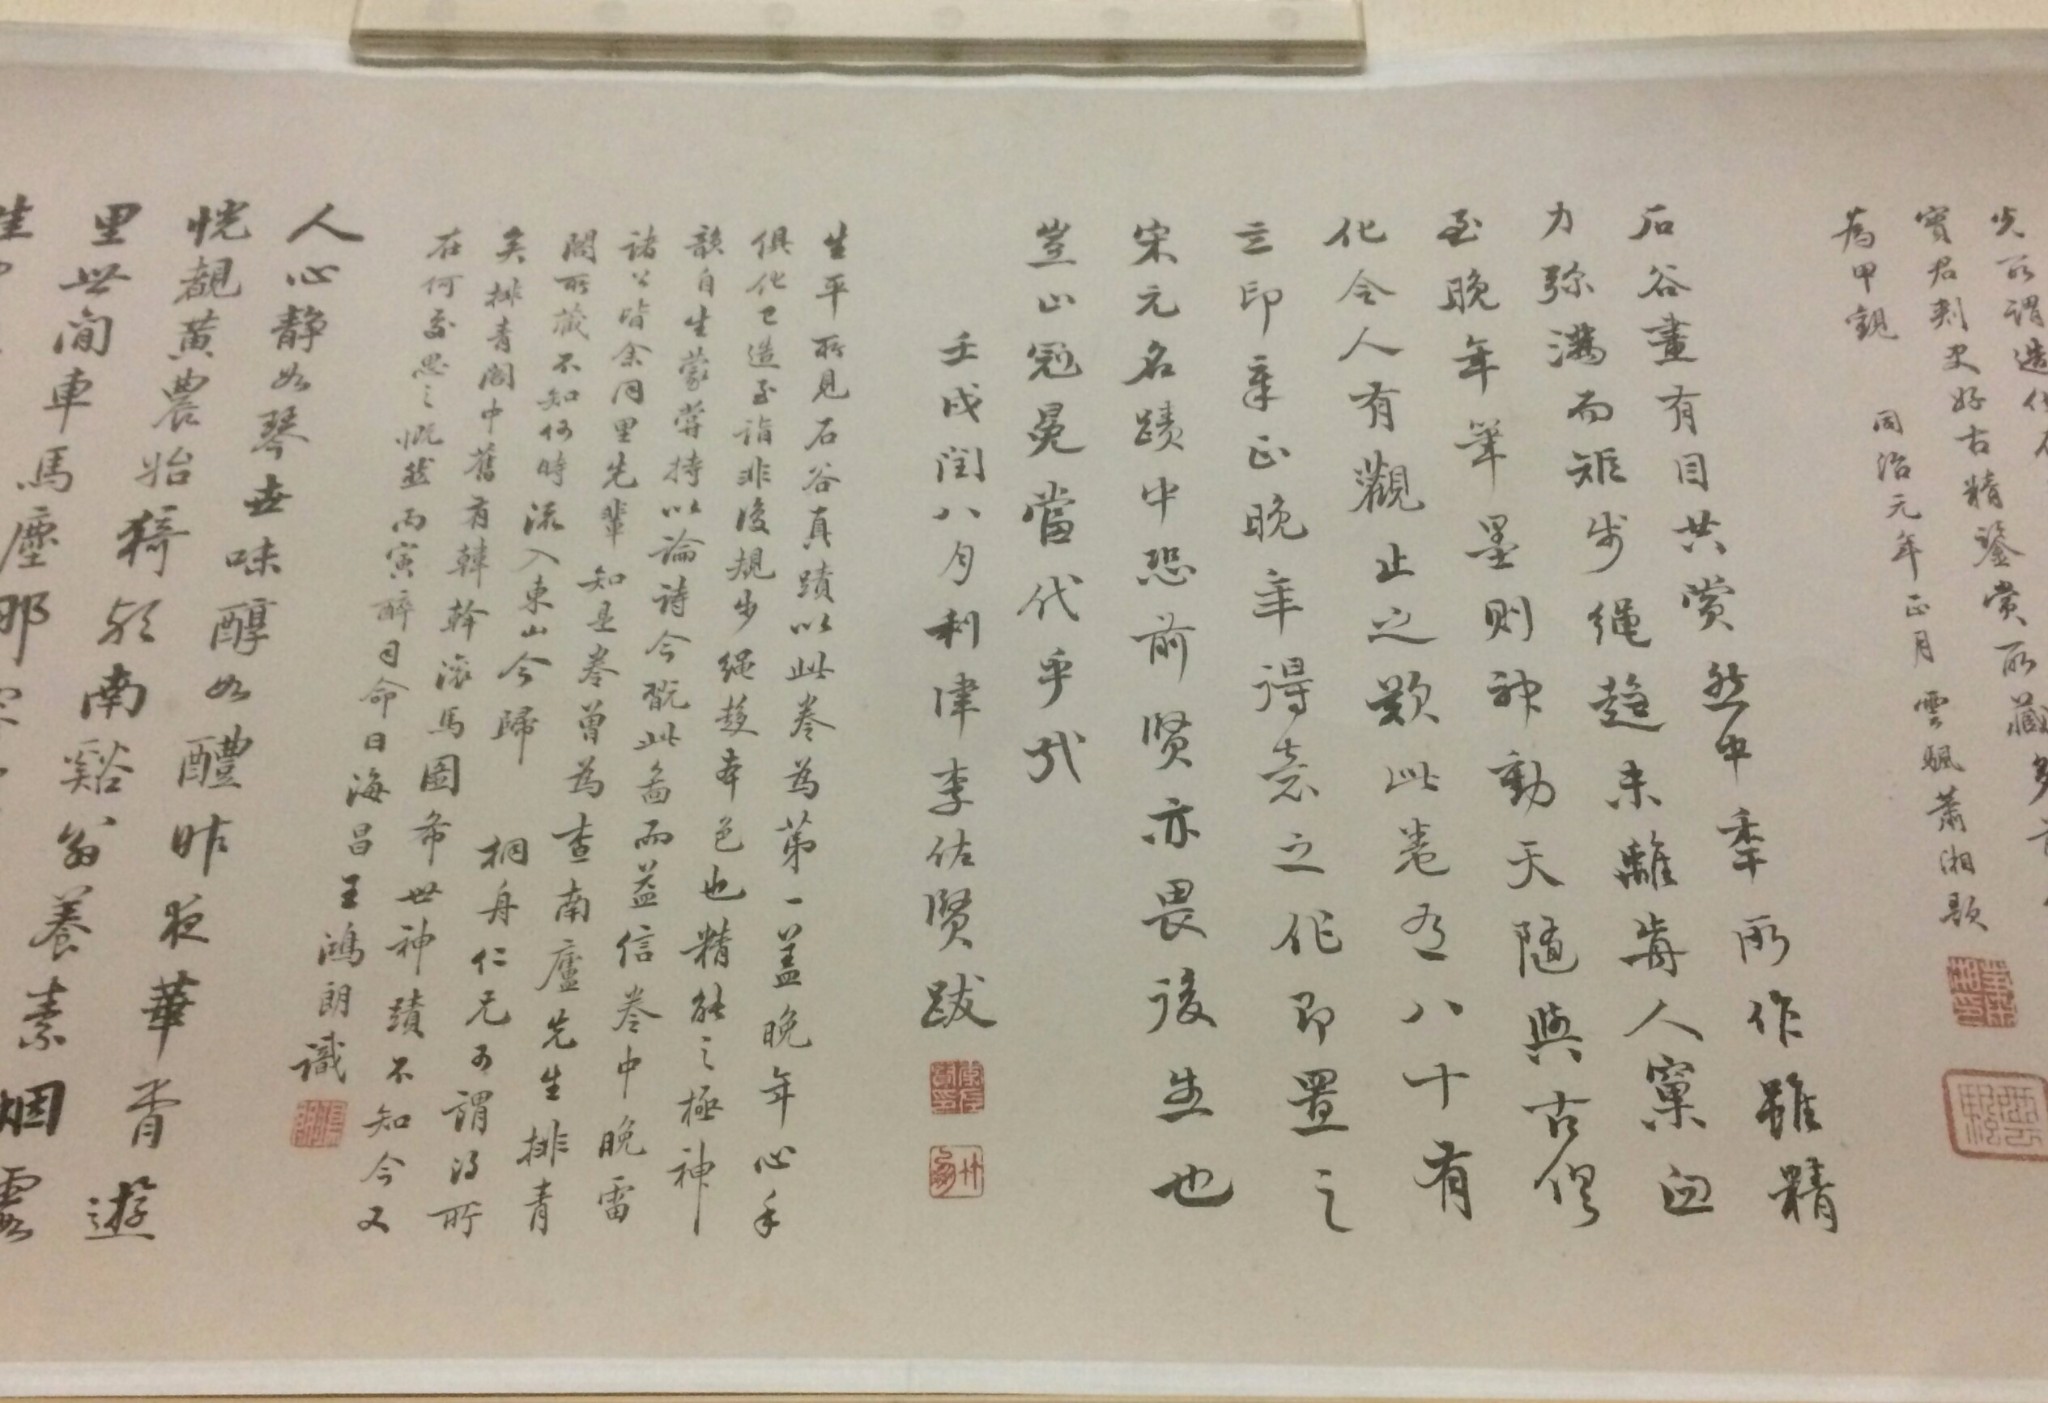 炎所謂造化在
實君刺史好古精鑒賞所藏
為甲觀
同治元年正月雲颿蕭湘題
石谷畫有目共賞然中年所作雖精
力彌滿而矩步繩趨未離耆人窠臼
至晚年筆墨則神動天隨與古俱
化令人有觀止之歎此卷有八十有
三印章正晚年得意之作即置之
宋元名蹟中恐前賢亦畏後生也
豈止冠冕當代乎
壬戌閏八月利津李佐賢跋
生平所見石谷真蹟以此卷為第一蓋晚年心手
俱化已造至詣非復規步繩趨本色也精能之極神
韻自生蒙嘗持以論詩今翫此畫而益信卷中晚雷
諸公皆余同里先輩知是卷曾為查南廬先生排青
閣所藏不知何時流入東山今歸
桐舟仁兄可謂得所
矣排青閣中舊有韓幹滾馬圖希世神蹟不知今又
在何處思之慨然丙寅醉司命日海昌王鴻朗識
人心靜如琴世味醇如醴昨夜華胥遊
恍覩黃農始猗
南谿翁養素烟霞
里世間車馬塵那